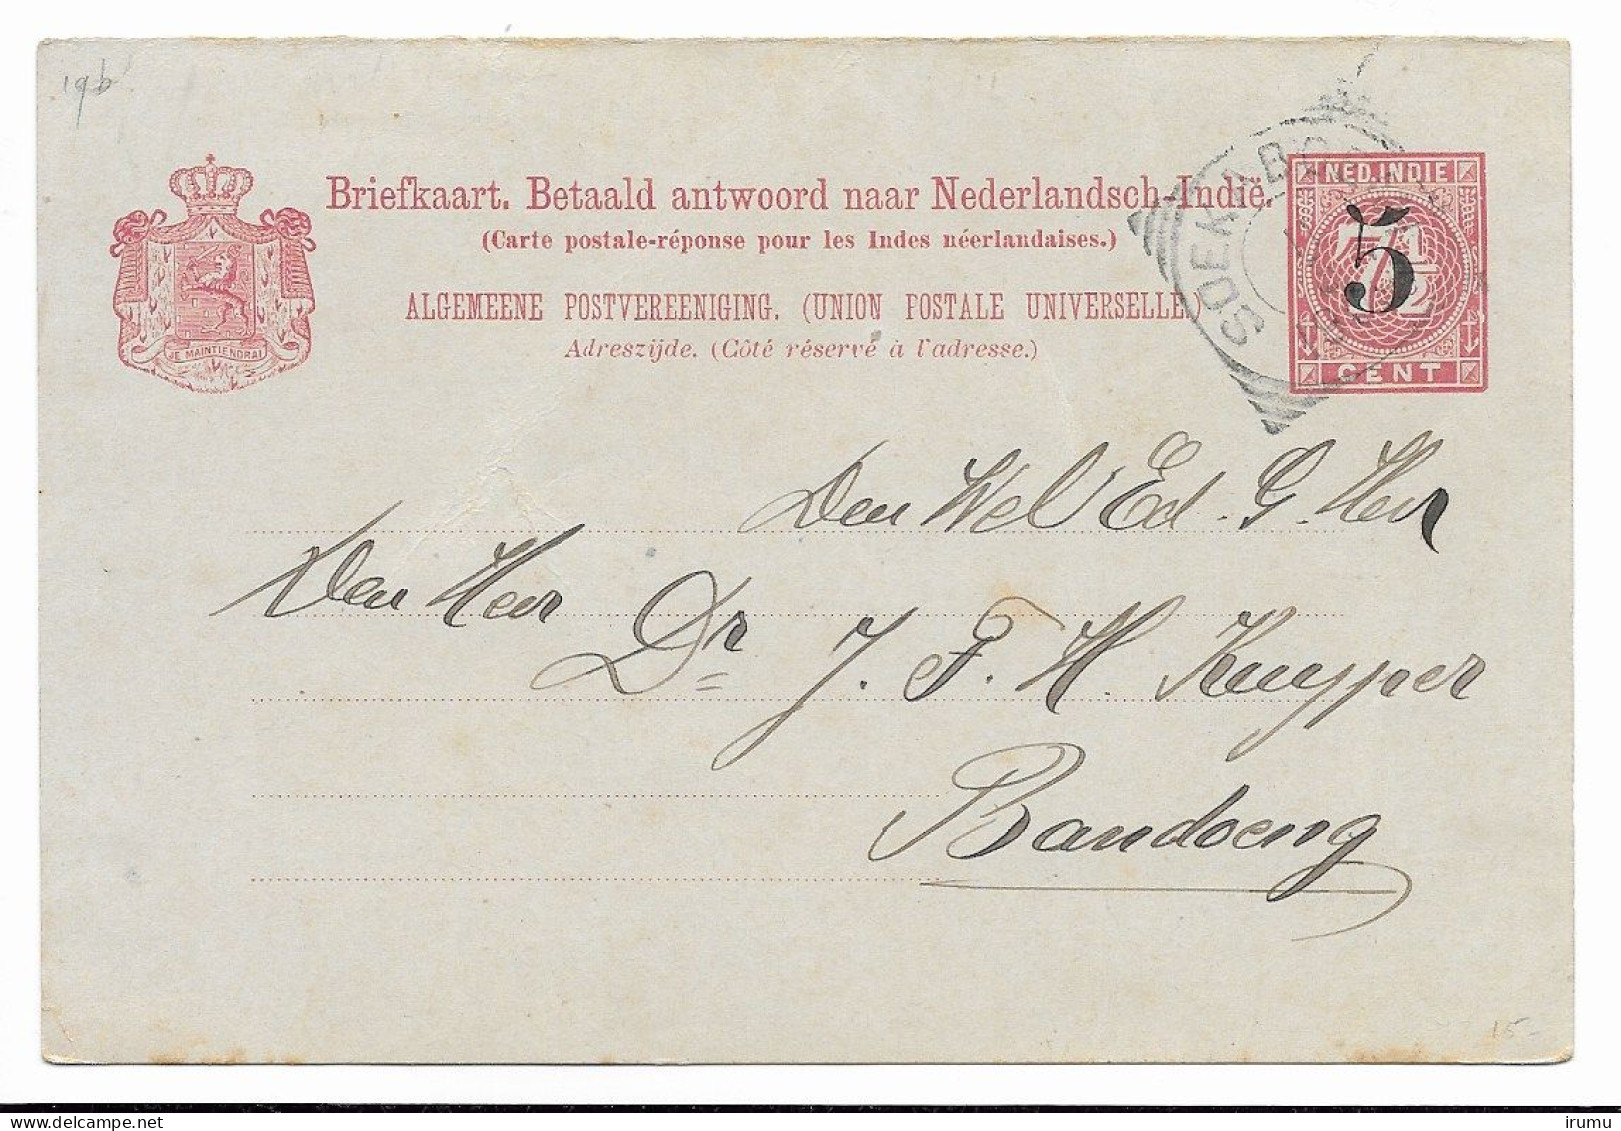 19b
Briefkaart. Betaald antwoord naar Nederlandsch-Indië.
(Carte postale-réponse pour les Indes néerlandaises.)
ALGEMEENE POSTVEREENIGING. (UNION POSTALE UNIVERSELLE.)
Adreszijde. (Côté réservé à l'adresse.)
JE MAINTIENDRAI
NED. INDIE
5
7½
CENT
Den Wel Ed. G. Heer
Den Heer Dr J. F. H. Kuyper
Bandoeng
15-
irumu